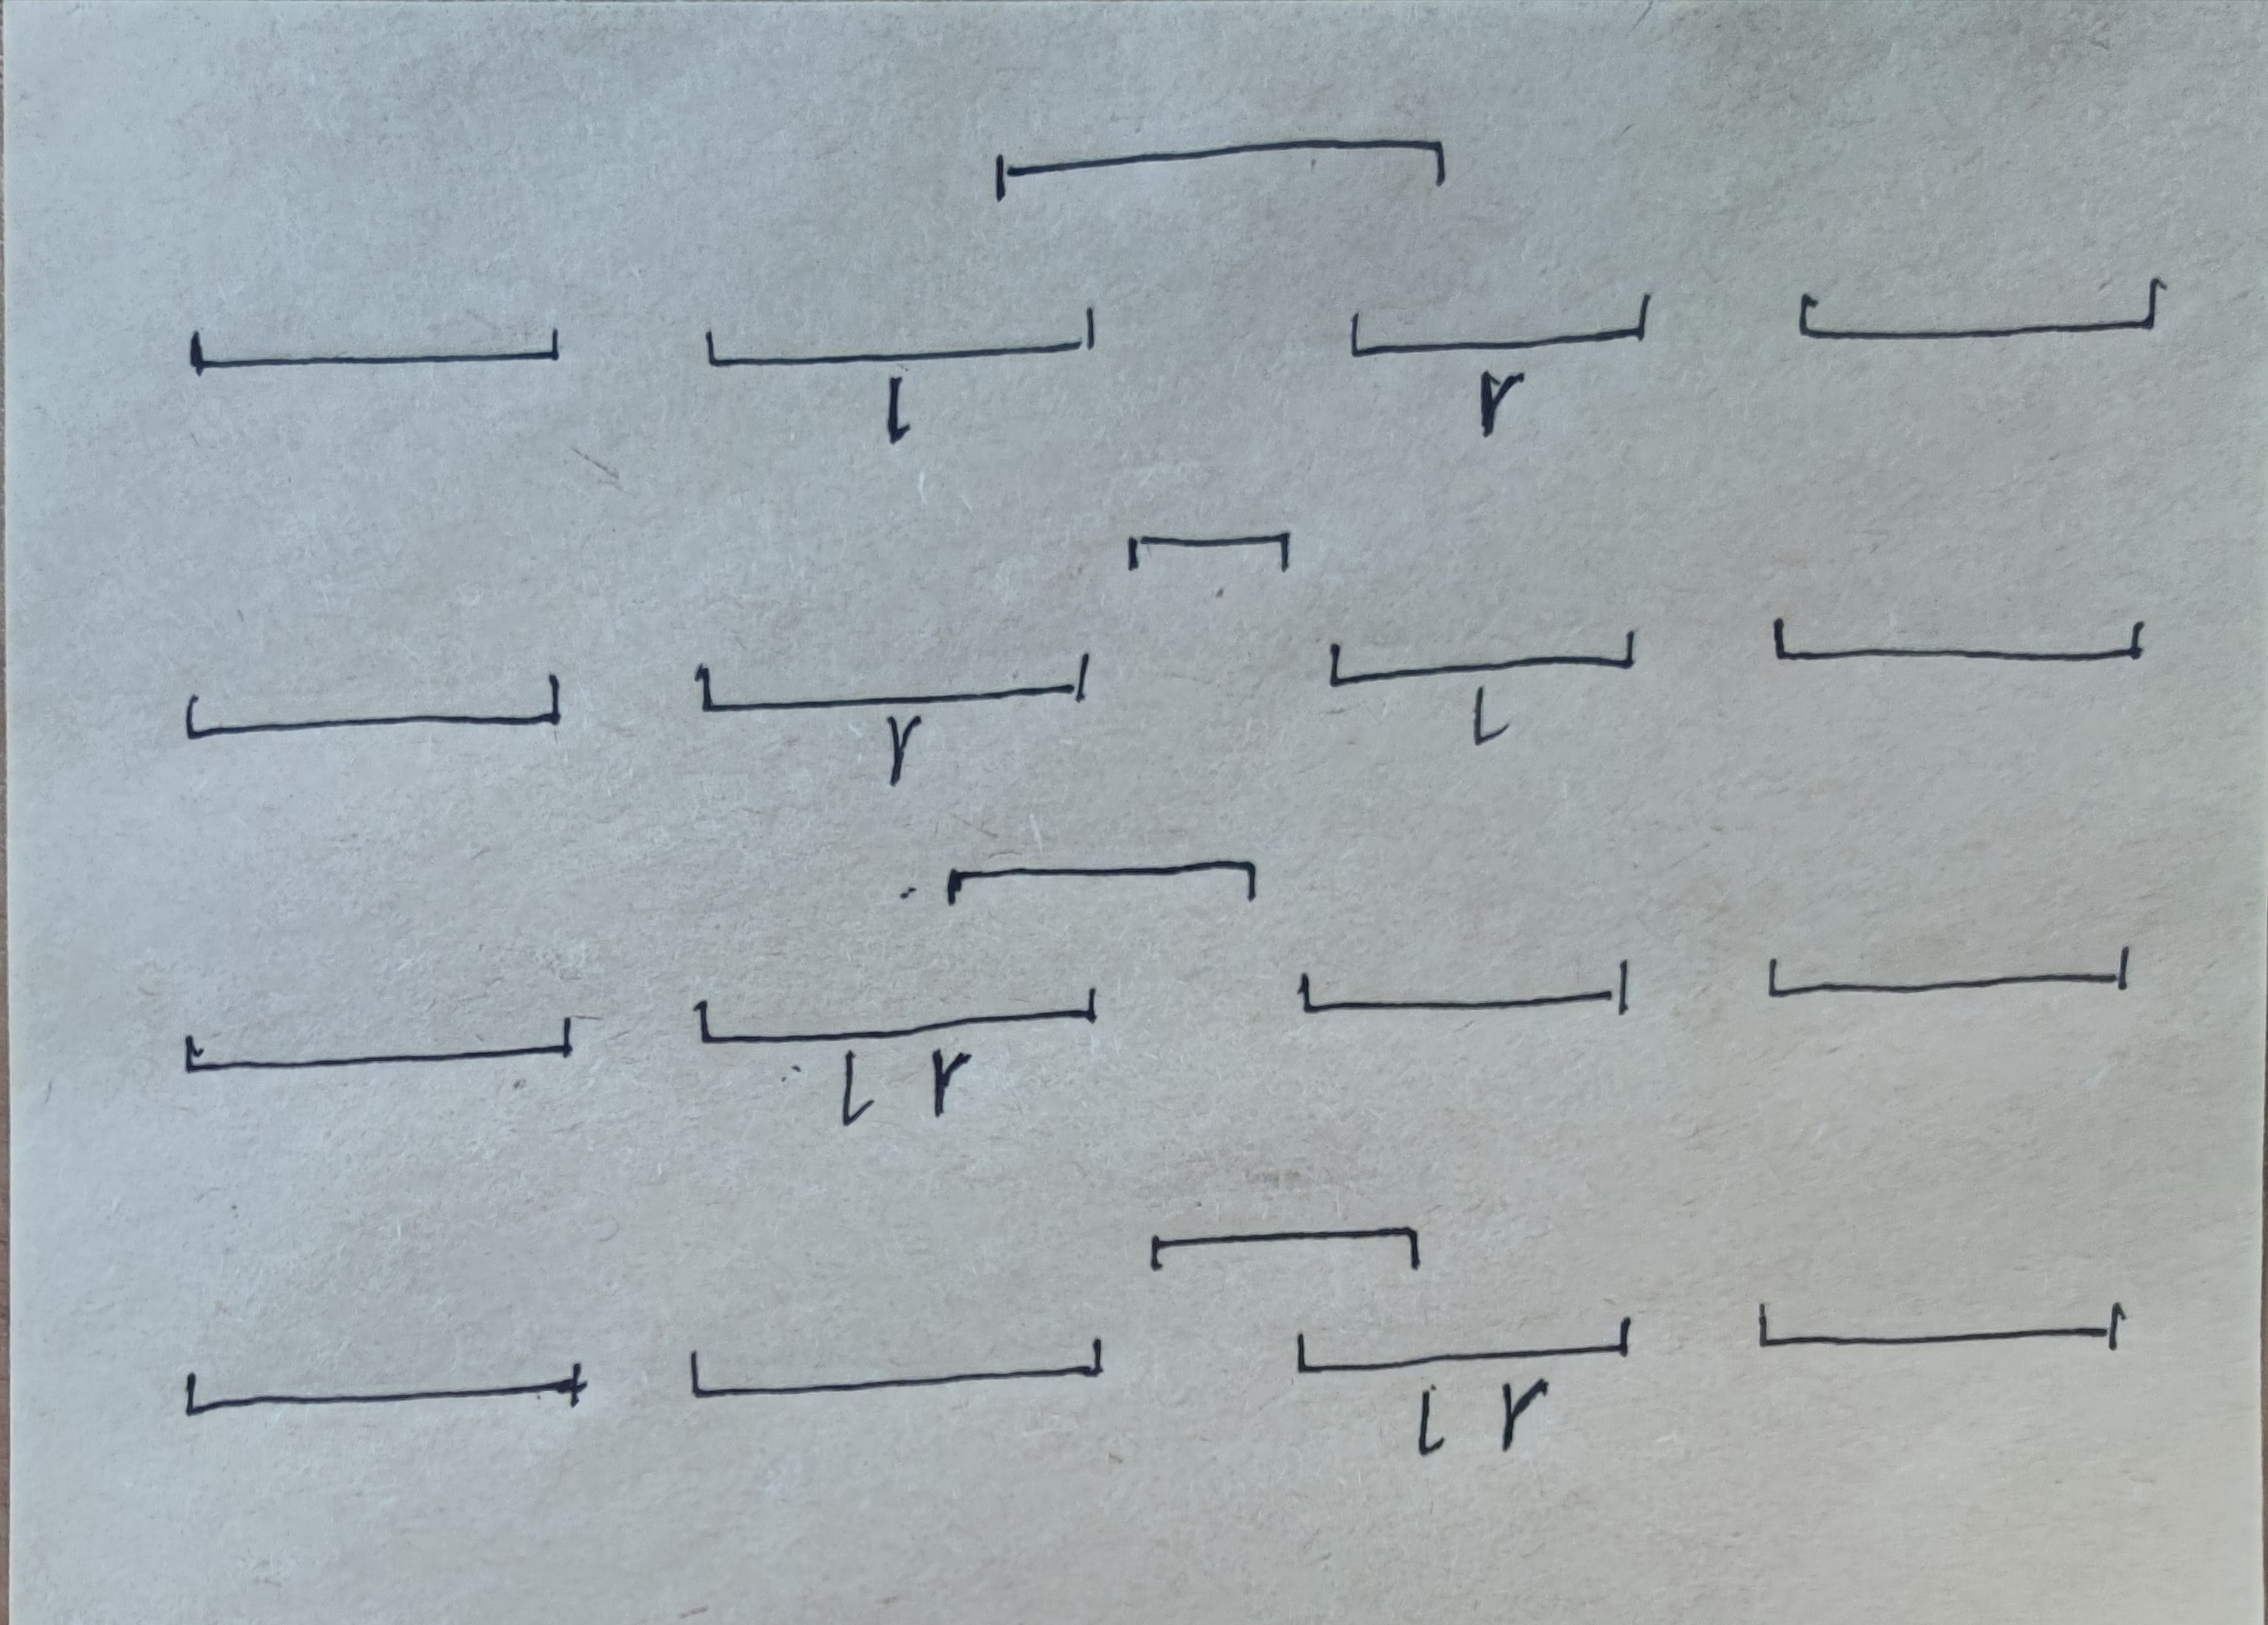 l r
r l
l r
l r